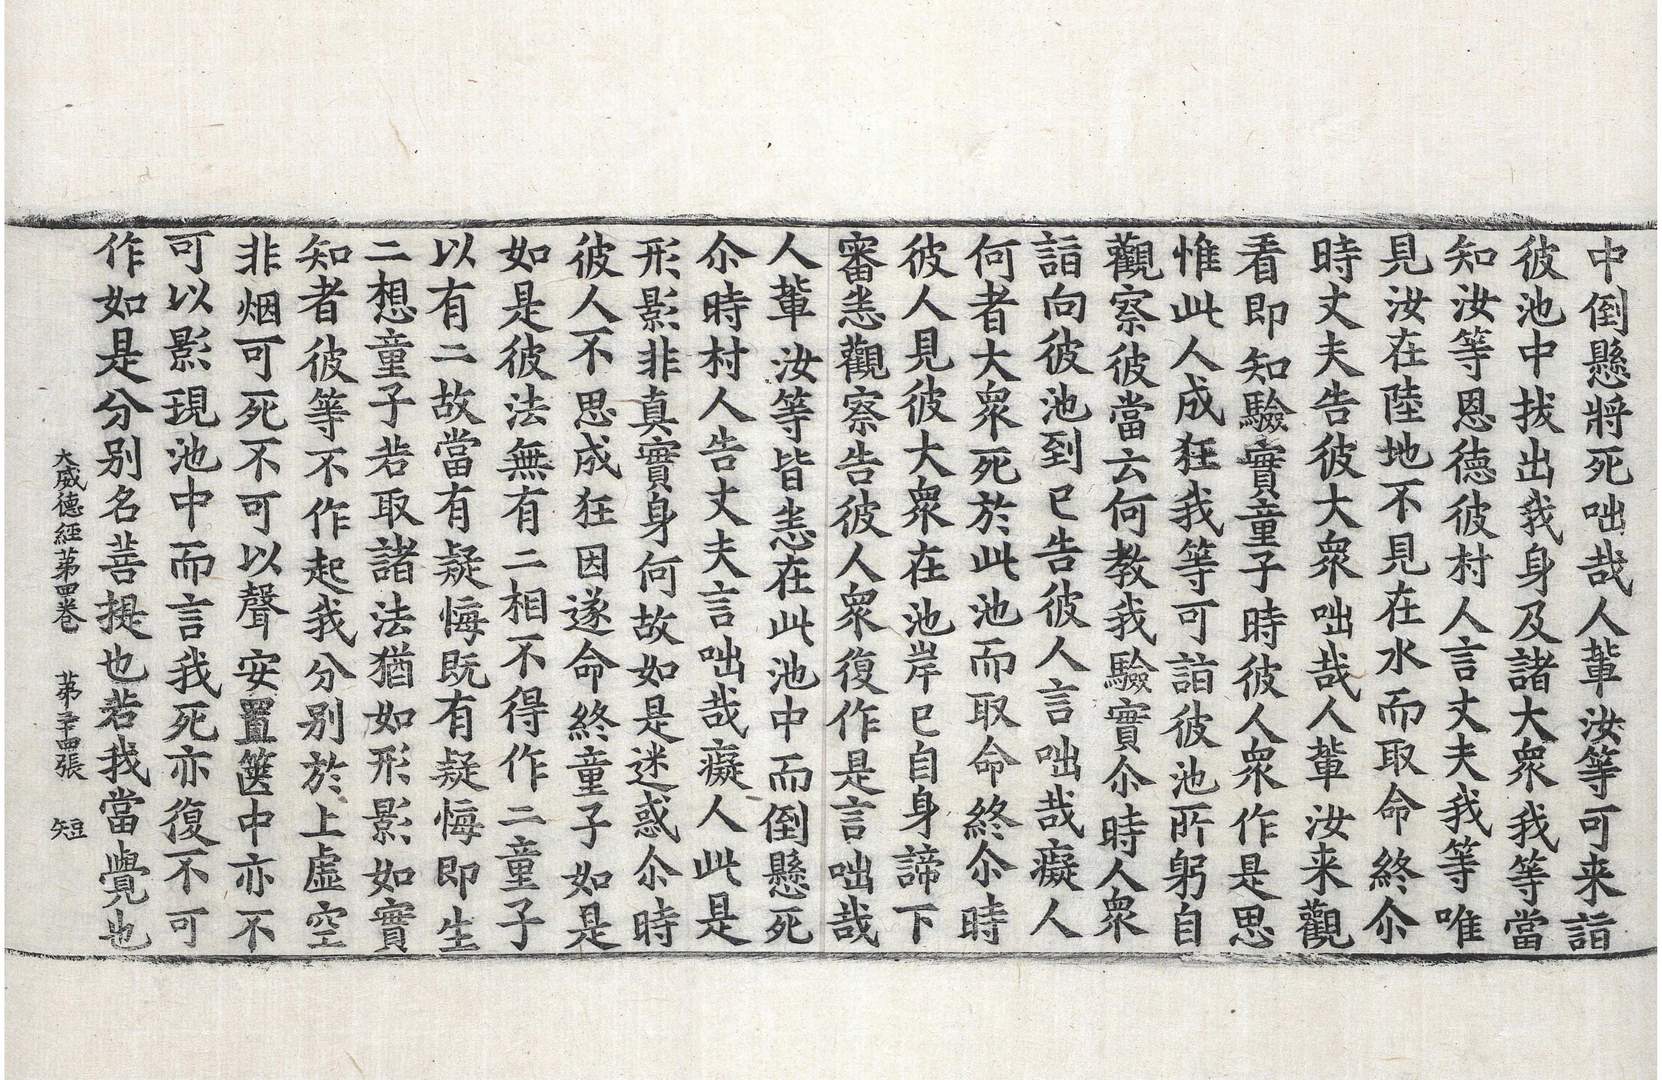 中倒懸將死咄哉人軰汝等可来詣
彼池中拔出我身及諸大衆我等當
知汝等恩德彼村人言丈夫我等唯
見汝在陸地不見在水而取命終尒
時丈夫告彼大衆咄哉人軰汝来觀
看即知驗實童子時彼人衆作是思
惟此人成狂我等可詣彼池所躬自
觀察彼當云何教我驗實尒時人衆
詣向彼池到已告彼人言咄哉癡人
何者大衆死於此池而取命終尒時
彼人見彼大衆在池岸已自身諦下
審悉觀察告彼人衆復作是言咄哉
人軰汝等皆悉在此池中而倒懸死
尒時村人告丈夫言咄哉癡人此是
形影非真實身何故如是迷惑尒時
彼人不思成狂因遂命終童子如是
如是彼法無有二相不得作二童子
以有二故當有疑悔既有疑悔即生
二想童子若取諸法猶如形影如實
知者彼等不作起我分别於上虛空
非烟可死不可以聲安置篋中亦不
可以影現池中而言我死亦復不可
作如是分别名菩提也若我當覺也
大威德經苐四卷　苐二十四張　短